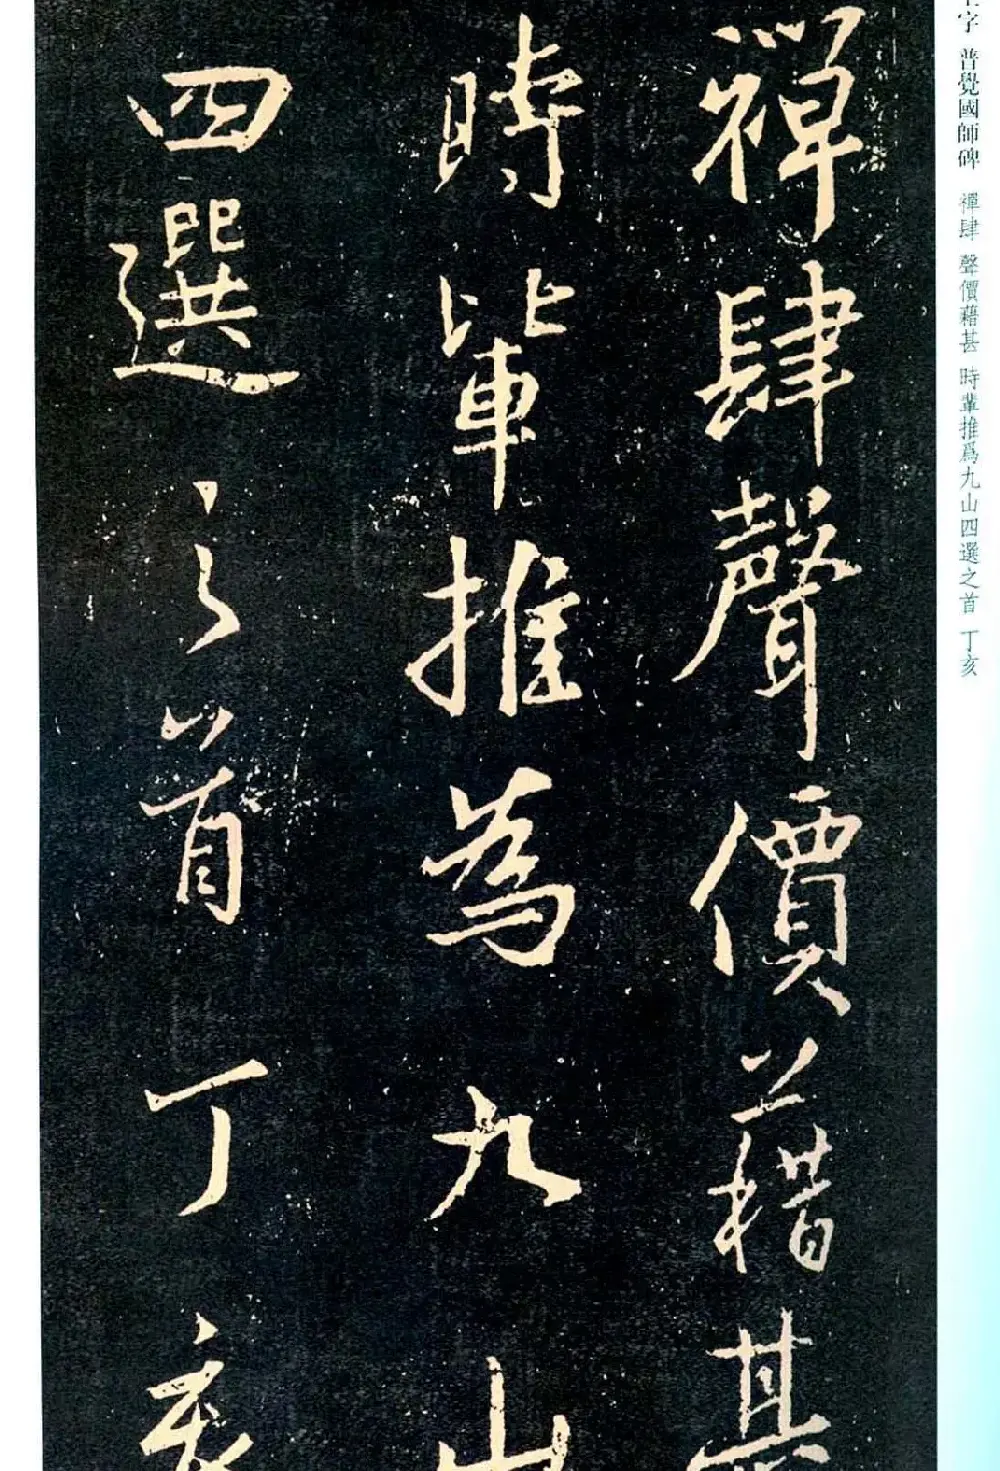 禪肆聲價藉甚
時輩推為九山
四選之首丁亥
字 普覺國師碑 禪肆 聲價藉甚 時輩推爲九山四選之首 丁亥